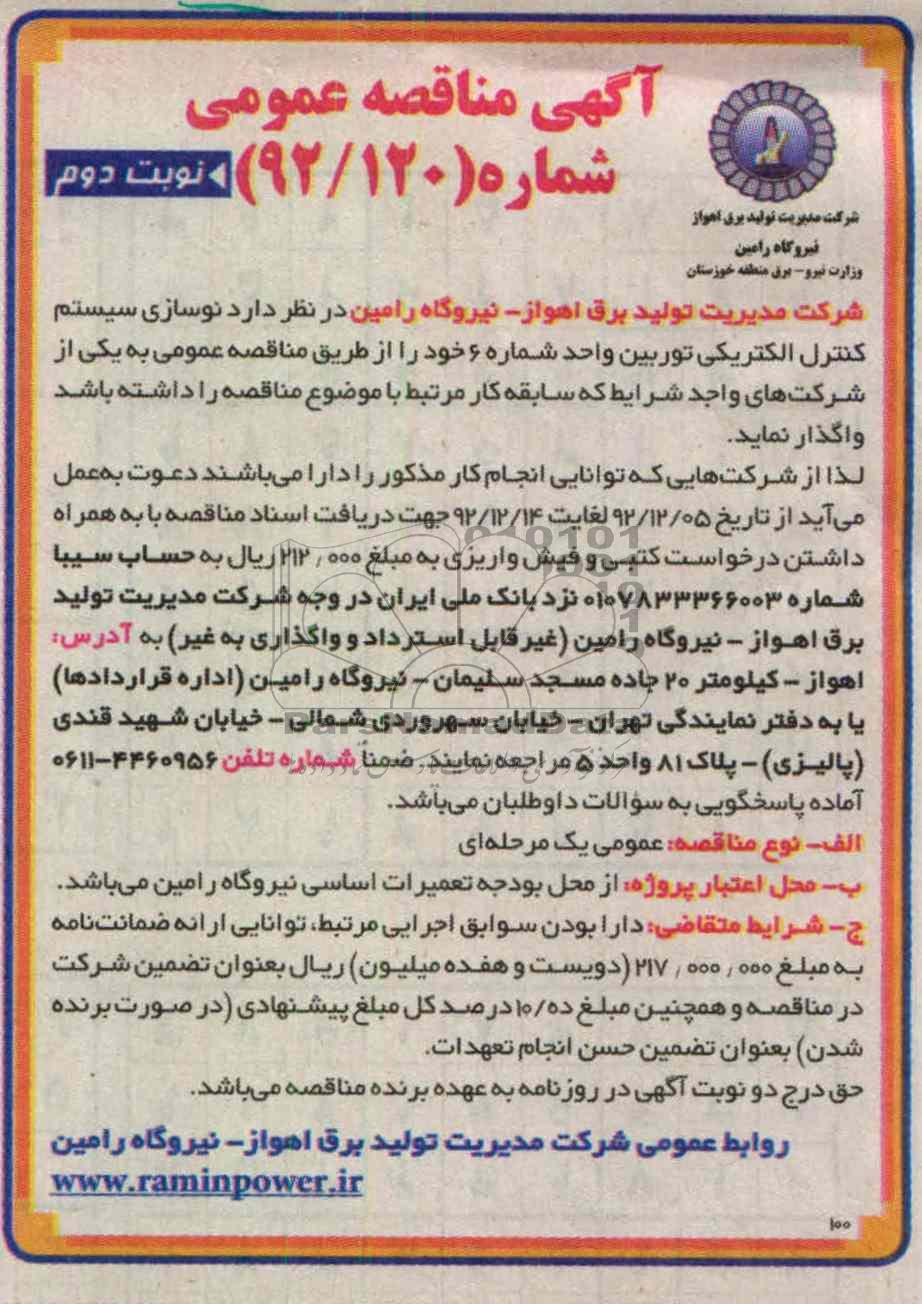 آگهی مناقصه عمومی
شماره (۹۲/۱۲۰)
نوبت دوم
شرکت مدیریت تولید برق اهواز
نیروگاه رامین
وزارت نیرو – برق منطقه خوزستان
شرکت مدیریت تولید برق اهواز– نیروگاه رامین در نظر دارد نوسازی سیستم
کنترل الکتریکی توربین واحد شماره ۶ خود را از طریق مناقصه عمومی به یکی از
شرکت‌های واجد شرایط که سابقه کار مرتبط با موضوع مناقصه را داشته باشد
واگذار نماید.
لذا از شرکت‌هایی که توانایی انجام کار مذکور را دارا می‌باشند دعوت به‌عمل
می‌آید از تاریخ ۹۲/۱۲/۰۵ لغایت ۹۲/۱۲/۱۴ جهت دریافت اسناد مناقصه با به همراه
داشتن درخواست کتبی و فیش واریزی به مبلغ ۲۱۲٫۰۰۰ ریال به حساب سیبا
شماره ۰۱۰۷۸۳۳۳۶۶۰۰۳ نزد بانک ملی ایران در وجه شرکت مدیریت تولید
برق اهواز – نیروگاه رامین (غیر قابل استرداد و واگذاری به غیر) به آدرس:
اهواز – کیلومتر ۲۰ جاده مسجد سلیمان – نیروگاه رامین (اداره قراردادها)
یا به دفتر نمایندگی تهران – خیابان سهروردی شمالی – خیابان شهید قندی
(پالیزی) – پلاک ۸۱ واحد ۵ مراجعه نمایند. ضمناً شماره تلفن ۴۴۶۰۹۵۶–۰۶۱۱
آماده پاسخگویی به سؤالات داوطلبان می‌باشد.
الف– نوع مناقصه: عمومی یک مرحله‌ای
ب– محل اعتبار پروژه: از محل بودجه تعمیرات اساسی نیروگاه رامین می‌باشد.
ج– شرایط متقاضی: دارا بودن سوابق اجرایی مرتبط، توانایی ارائه ضمانت‌نامه
به مبلغ ۲۱۷٫۰۰۰٫۰۰۰ (دویست و هفده میلیون) ریال بعنوان تضمین شرکت
در مناقصه و همچنین مبلغ ده/۱۰ درصد کل مبلغ پیشنهادی (در صورت برنده
شدن) بعنوان تضمین حسن انجام تعهدات.
حق درج دو نوبت آگهی در روزنامه به عهده برنده مناقصه می‌باشد.
روابط عمومی شرکت مدیریت تولید برق اهواز– نیروگاه رامین
www.raminpower.ir
۱۰۰